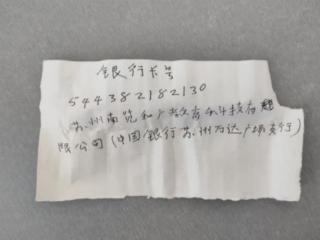 银行卡号
544382182130
苏州南览和广告文化科技有
限公司(中国银行苏州万达广场支行)